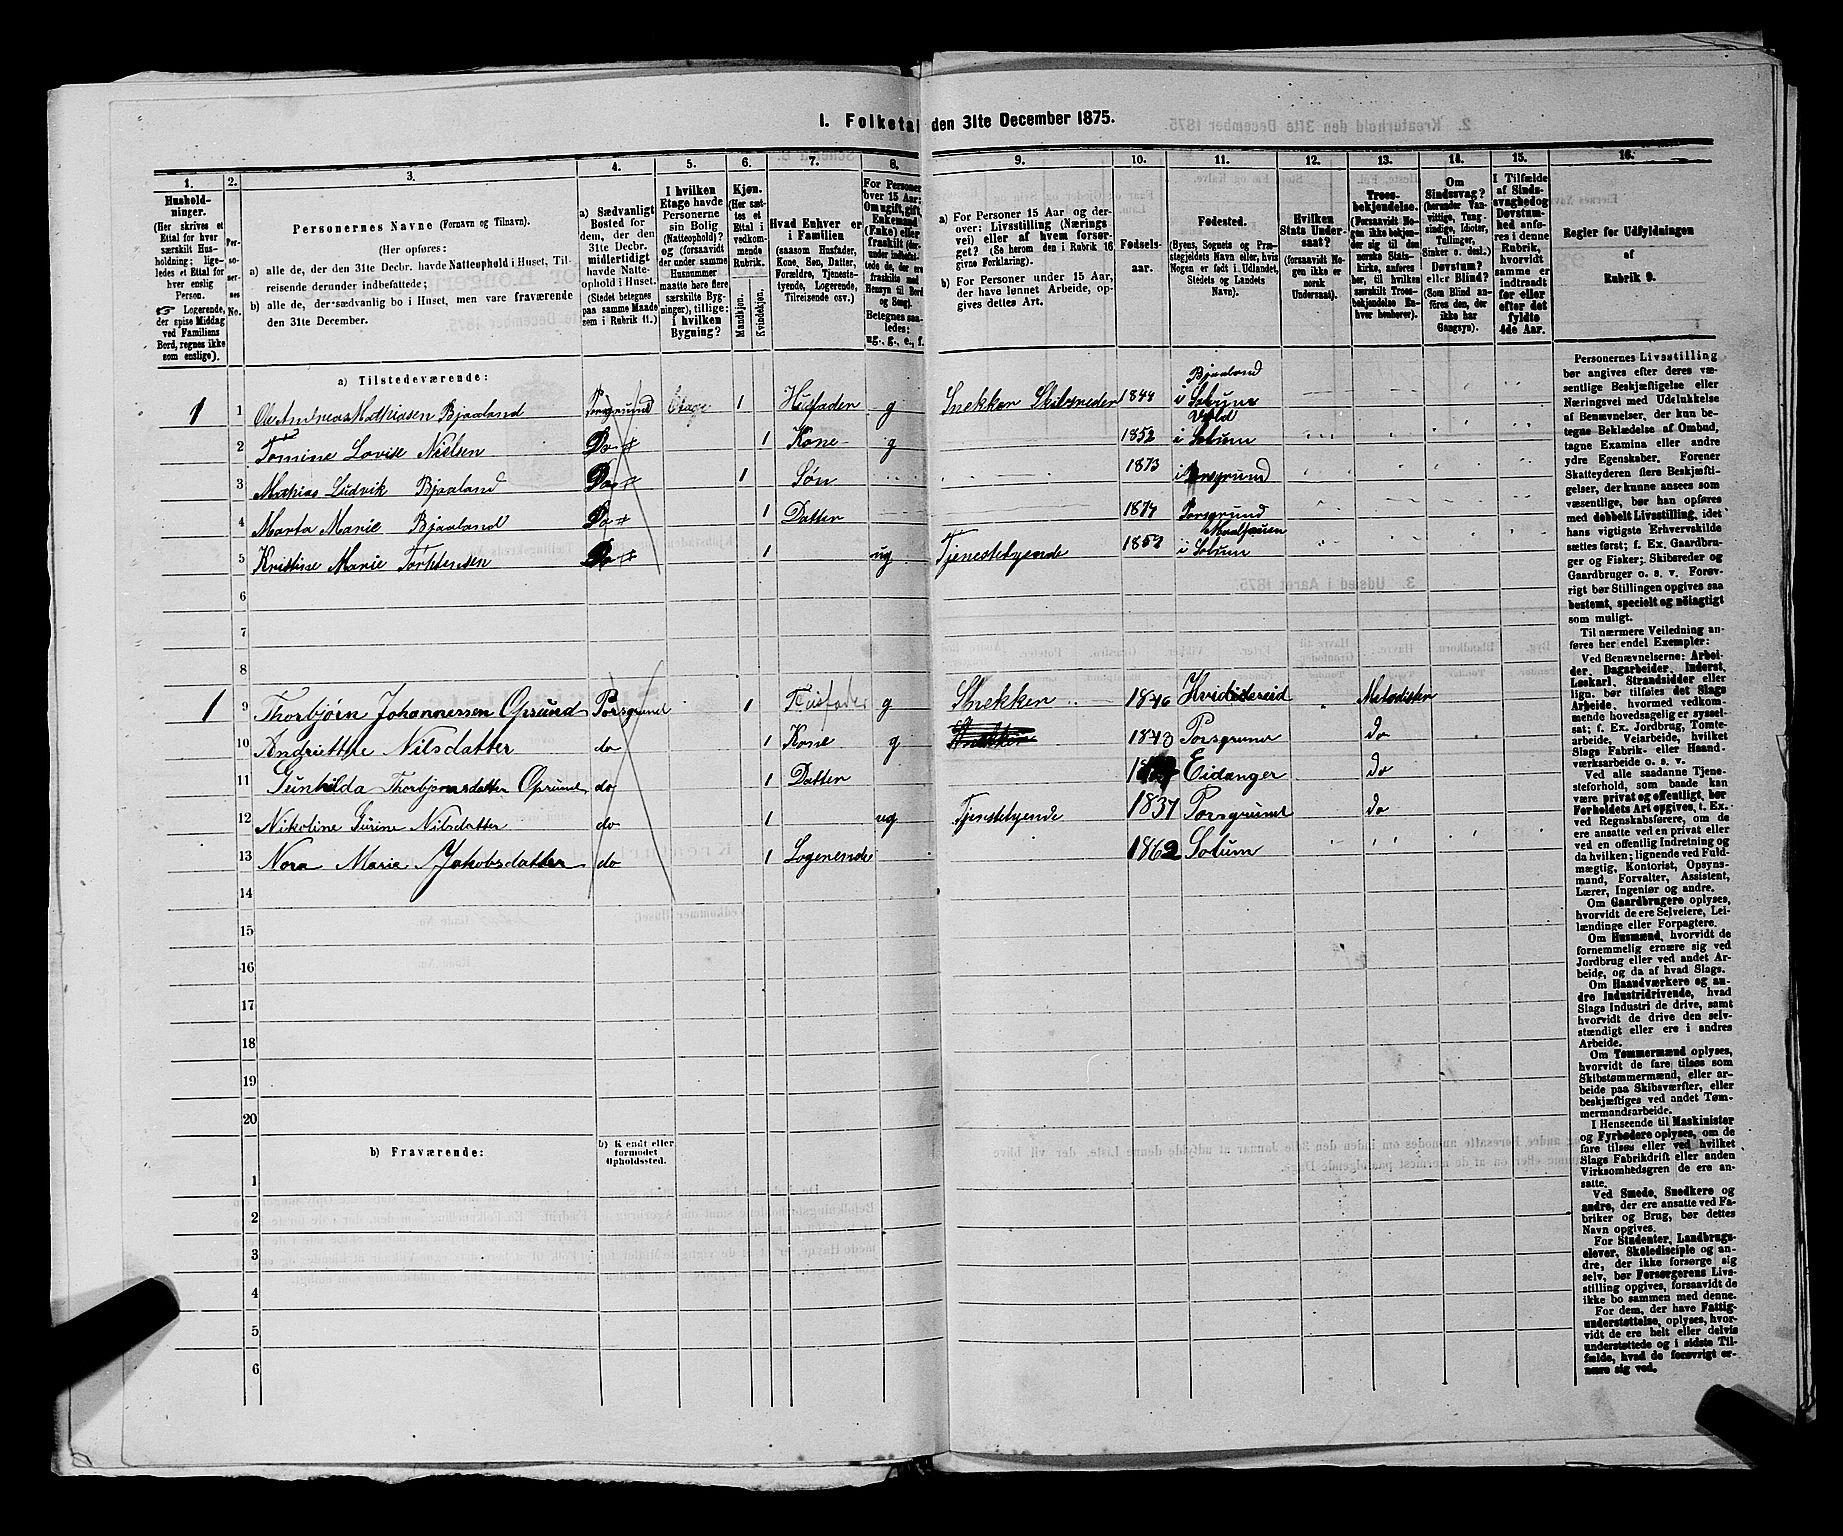 1. Folketal den 31te December 1875.
1. 2. 3. 4. 5. 6. 7. 8. 9. 10. 11. 12. 13. 14. 15. 16.
Hushold-
ninger.
(Her skrives et
Ettal for hver
særskilt Hus-
holdning; lige-
ledes et Ettal for
hver enslig
Person.
Logerende,
der spise Middag
ved Familiens
Bord, regnes ikke
som enslige).
Personernes No.
Personernes Navne (Fornavn og Tilnavn).
(Her opføres:
a) alle de, der den 31te Decbr. havde Natteophold i Huset, Til-
reisende derunder indbefattede;
b) alle de, der sædvanlig bo i Huset, men vare fraværende
den 31te December.
a) Sædvanligt
Bosted for
dem, der den
31te Decbr.
midlertidigt
havde Natte-
ophold i Huset.
(Stedet betegnes
paa samme Maade
som i Rubrik 11.)
I hvilken
Etage havde
Personerne
sin Bolig
(Natteophold)?
og (forsaavidt
der under samme
Husnummer
maatte høre flere
særskilte Byg-
ninger), tillige:
i hvilken
Bygning?
Kjøn.
(Her sæt-
tes et
Ettal i
vedkom-
mende
Rubrik.
Mandkjøn.
Kvindekjøn.
Hvad Enhver er
i Familien
(saasom Husfader,
Kone, Søn, Datter,
Forældre, Tjeneste-
tyende, Logerende,
Tilreisende osv.)
For Personer
over 15 Aar:
Om ugift, gift,
Enkemand
(Enke) eller
fraskilt (der-
under indbefat-
tede de, der ere
fraskilte med
Hensyn til Bord
og Seng).
Betegnes saa-
ledes:
ug., g., e., f.
a) For Personer 15 Aar og der-
over: Livsstilling (Nærings-
vei) eller af hvem forsør-
get? (Se herom den i Rubrik 16
givne Forklaring).
b) For Personer under 15 Aar,
der have lønnet Arbeide, op-
gives dettes Art.
Fødsels-
aar.
Fødested.
(Byens, Sognets og Præ-
stegjeldets Navn eller, hvis
Nogen er født i Udlandet,
Stedets og Landets
Navn).
Hvilken
Stats Under-
saat?
(forsaavidt No-
gen ikke er
norsk
Undersaat).
Troes-
bekjendelse.
(Forsaavidt No-
gen ikke bekjen-
der sig til den
norske Stats-
kirke, anføres
her, til hvilken
særskilt Troes-
bekjendelse En-
hver henhører).
Om
Sindssvag?
(herunder Van-
vittige, Tung-
sindige, Idioter,
Tullinger,
Sinker o. desl.)
eller
Døvstum?
eller Blind?
(Som Blind an-
føres den, der
ikke har
Gangsyn).
I Tilfælde
af Sinds-
svaghed og
Døvstum-
hed anfø-
res i denne
Rubrik,
hvorvidt
samme er
indtraadt
før eller
efter det
fyldte
4de Aar.
Regler for Udfyldningen
af
Rubrik 9.
a) Tilstedeværende:
1 1 Ole Andreas Mathiasen Bjaaland Porsgrund Etage 1 Husfader g Snekker Skibsreder 1844 Bjaaland i Solum
2 Tomine Lovise Nielsen Do 1 Kone g 1852 Vold i Solum
3 Mathias Ludvik Bjaaland Do 1 Søn 1873 i Porsgrund
4 Marta Marie Bjaaland Do 1 Datter 1874 Porsgrund
5 Kristine Marie Do 1 ug Tjenestetyende 1853 i Solum
6
7
8
1 9 Thorbjørn Johannessen Opsund Porsgrund 1 Husfader g Snekker 1846 Hvideseid Metodister
10 Andriette Nilsdatter do 1 Kone g 1843 Porsgrund do
11 Gunhilda Thorbjørnsdatter Opsund do 1 Datter Eidanger do
12 Nikoline Gurine Nilsdatter do 1 ug Tjenstetyende 1837 Porsgrund do
13 Nora Marie Jakobsdatter do 1 Logerende 1862 Solum
14
15
16
17
18
19
20
b) Fraværende:
b) Kjendt eller
formodet
Opholdssted.
1
2
3
4
5
6
Personernes Livsstilling
bør angives efter deres væ-
sentlige Beskjæftigelse eller
Næringsvei med Udelukkelse
af Benævnelser, der kun be-
tegne Beklædelse af Ombud,
tagne Examina eller andre
ydre Egenskaber. Forener
Skatteyderen flere Beskjæfti-
gelser, der kunne ansees som
væsentlige, bør han opføres
med dobbelt Livsstilling, idet
hans vigtigste Erhvervskilde
sættes først; f. Ex. Gaardbru-
ger og Fisker; Skibsreder og
Gaardbruger o. s. v. Forøv-
rigt bør Stillingen opgives saa
bestemt, specielt og nøiagtigt
som muligt.
Til nærmere Veiledning an-
føres her endel Exempler:
Ved Benævnelserne: Arbei-
der, Dagarbeider, Inderst,
Løskarl, Strandsidder eller
lign. bør tilføies det Slags
Arbeide, hvormed vedkom-
mende hovedsagelig er syssel-
sat; f. Ex. Jordbrug, Tomte-
arbeide, Veiarbeide, hvilket
Slags Fabrik- eller Haand-
værksarbeide o. s. v.
Ved alle saadanne Tjene-
steforhold, som baade kan
være privat og offentligt, bør
Forholdets Art opgives, f. Ex.
ved Regnskabsførere, om de
ere ansatte ved en privat eller
ved en offentlig Indretning og
da hvilken; lignende ved Fuld-
mægtig, Kontorist, Opsyns-
mand, Forvalter, Assistent,
Lærer, Ingeniør og andre.
Om Gaardbrugere oplyses,
hvorvidt de ere Selveiere, Lei-
lændinge eller Forpagtere.
Om Husmænd, hvorvidt de
fornemmelig ernære sig ved
Jordbrug eller ved andet Ar-
beide, og da af hvad Slags.
Om Haandværkere og an-
dre Industridrivende, hvad
Slags Industri de drive, samt
hvorvidt de drive den selv-
stændigt eller ere i andres
Arbeide.
Om Tømmermænd oplyses,
hvorvidt de fare tilsøs som
Skibstømmermænd, eller ar-
beide paa Skibsværfter, eller
beskjæftiges ved andet Tøm-
mermandsarbeide.
I Henseende til Maskinister
og Fyrbødere oplyses, om de
fare tilsøs eller ved hvilket
Slags Fabrikdrift eller anden
Virksomhedsgren de ere an-
satte.
Ved Smede, Snedkere og
andre, der ere ansatte ved Fa-
briker og Brug, bør dettes
Navn opgives.
For Studenter, Landbrugs-
elever, Skoledisciple og an-
dre, der ikke forsørge sig
selv, bør Forsørgerens Livs-
stilling opgives, forsaavidt de
ikke bo sammen med denne.
For dem, der have Fattig-
understøttelse, oplyses, hvor-
vidt de ere helt eller delvis
understøttede og i sidste Til-
fælde, hvad de forøvrigt er-
nære sig ved.